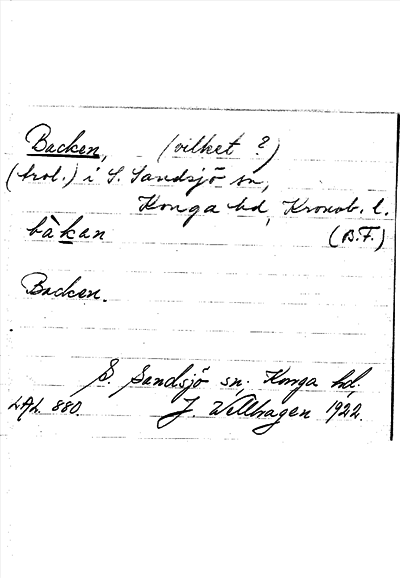 Backen, (vilket ?)
(trol.) i S. Sandsjö sn,
Konga hd, Kronob. l.
bàkan (B.F.)
Backen.
S. Sandsjö sn, Konga hd,
LAL. 880. J. Wellhagen 1922.